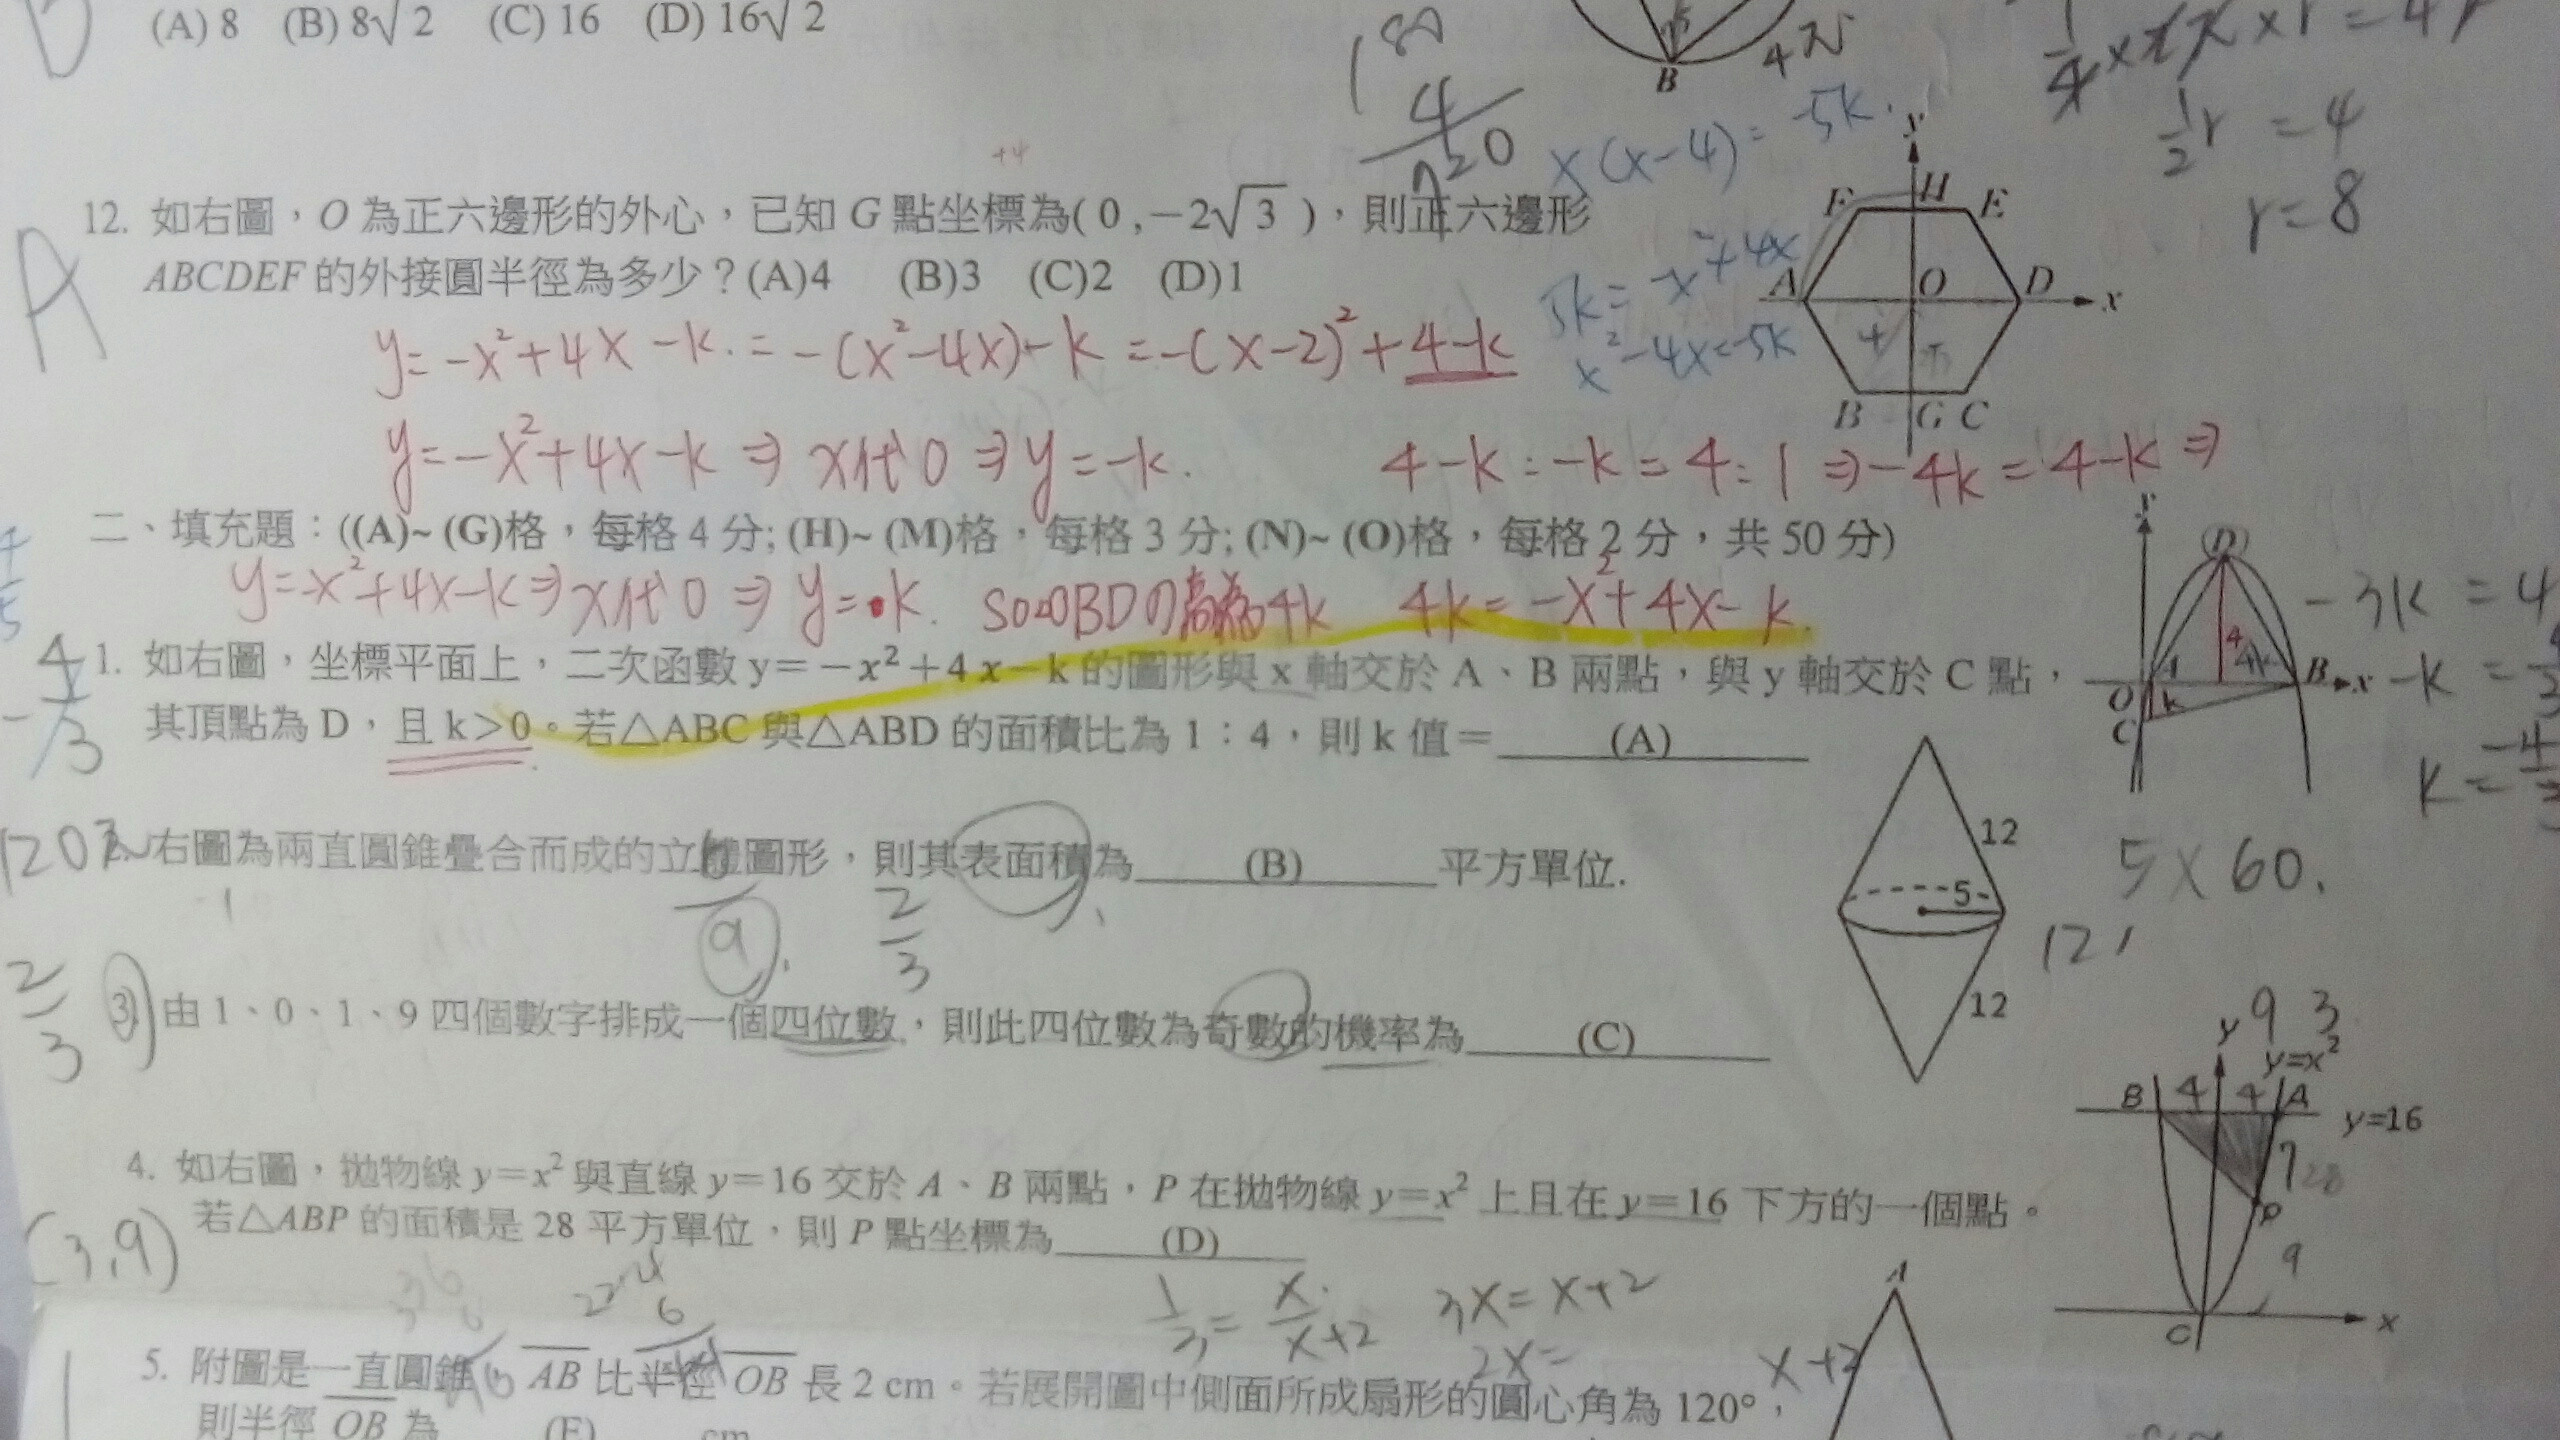 (A) 8 (B) 8√2 (C) 16 (D) 16√2
B
4
r=4
r=8
+4
x(x-4)=-5k
12. 如右圖，O 為正六邊形的外心，已知 G 點坐標為( 0 ,－2√3 )，則正六邊形
ABCDEF 的外接圓半徑為多少？(A)4 (B)3 (C)2 (D)1
A
y
F H E
A O D x
B G C
x²-4x=-5k
y=-x²+4x-k.=-(x²-4x)-k=-(x-2)²+4-k
y=-x²+4x-k⇒x代0⇒y=-k.
4-k:-k=4:1⇒-4k=4-k⇒
二、填充題：((A)~ (G)格，每格 4 分; (H)~ (M)格，每格 3 分; (N)~ (O)格，每格 2 分，共 50 分)
y=-x²+4x-k⇒x代0⇒y=k. so△OBDの高為4k 4k=-x²+4x-k.
1. 如右圖，坐標平面上，二次函數 y＝－x²＋4 x－k 的圖形與 x 軸交於 A、B 兩點，與 y 軸交於 C 點，
其頂點為 D，且 k＞0。若△ABC 與△ABD 的面積比為 1：4，則 k 值＝ (A)
y
(D)
4 4k
O A B x
k
C
-3k=4
右圖為兩直圓錐疊合而成的立體圖形，則其表面積為 (B) 平方單位.
12
5
12
5×60.
9
2/3
2/3
3. 由 1、0、1、9 四個數字排成一個四位數，則此四位數為奇數的機率為 (C)
y 9 3
y=x²
B 4 4 A
y=16
7 28
P
9
C x
4. 如右圖，拋物線 y＝x² 與直線 y＝16 交於 A、B 兩點，P 在拋物線 y＝x² 上且在 y＝16 下方的一個點。
若△ABP 的面積是 28 平方單位，則 P 點坐標為 (D)
(3,9)
1/3=x/x+2 3x=x+2
2x=
x+2
A
5. 附圖是一直圓錐，AB 比半徑 OB 長 2 cm。若展開圖中側面所成扇形的圓心角為 120°，
則半徑 OB 為 (E) cm